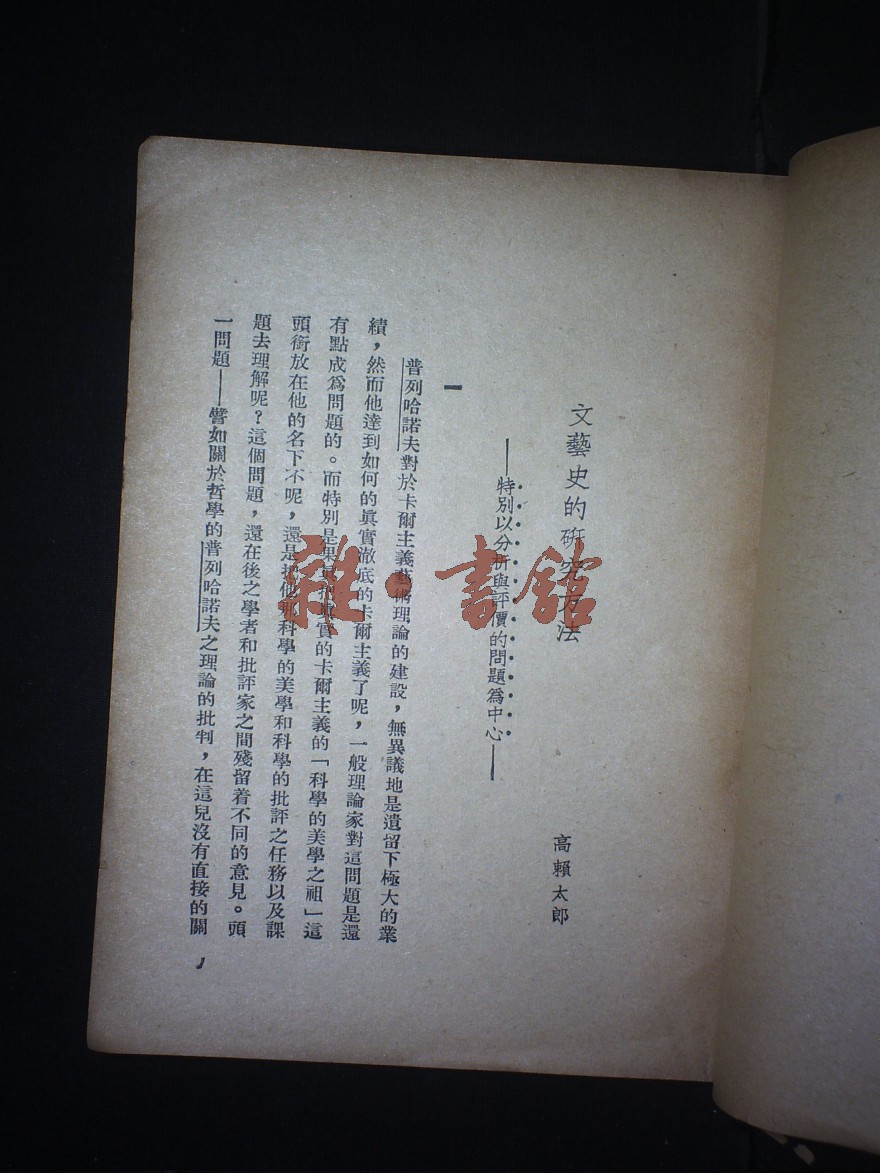 文藝史的研究方法
——特別以分析與評價的問題爲中心——
高賴太郎
一
普列哈諾夫對於卡爾主義藝術理論的建設，無異議地是遺留下極大的業
績，然而他達到如何的眞實澈底的卡爾主義了呢，一般理論家對這問題是還
有點成爲問題的。而特別是果眞把眞實的卡爾主義的「科學的美學之祖」這
頭銜放在他的名下不呢，還是把他那科學的美學和科學的批評之任務以及課
題去理解呢？這個問題，還在後之學者和批評家之間殘留着不同的意見。頭
一問題——譬如關於哲學的普列哈諾夫之理論的批判，在這兒沒有直接的關
雜·書館